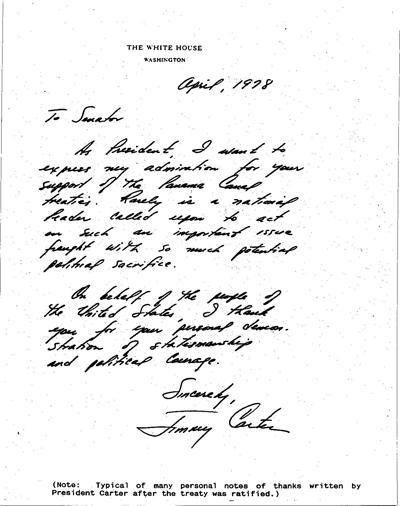 THE WHITE HOUSE
WASHINGTON
April, 1978
To Senator
As President, I want to
express my admiration for your
support of the Panama Canal
treaties. Rarely is a national
leader called upon to act
on such an important issue
fraught with so much potential
political sacrifice.
On behalf of the people of
the United States, I thank
you for your personal demon-
stration of statesmanship
and political courage.
Sincerely,
Jimmy Carter
(Note: Typical of many personal notes of thanks written by
President Carter after the treaty was ratified.)